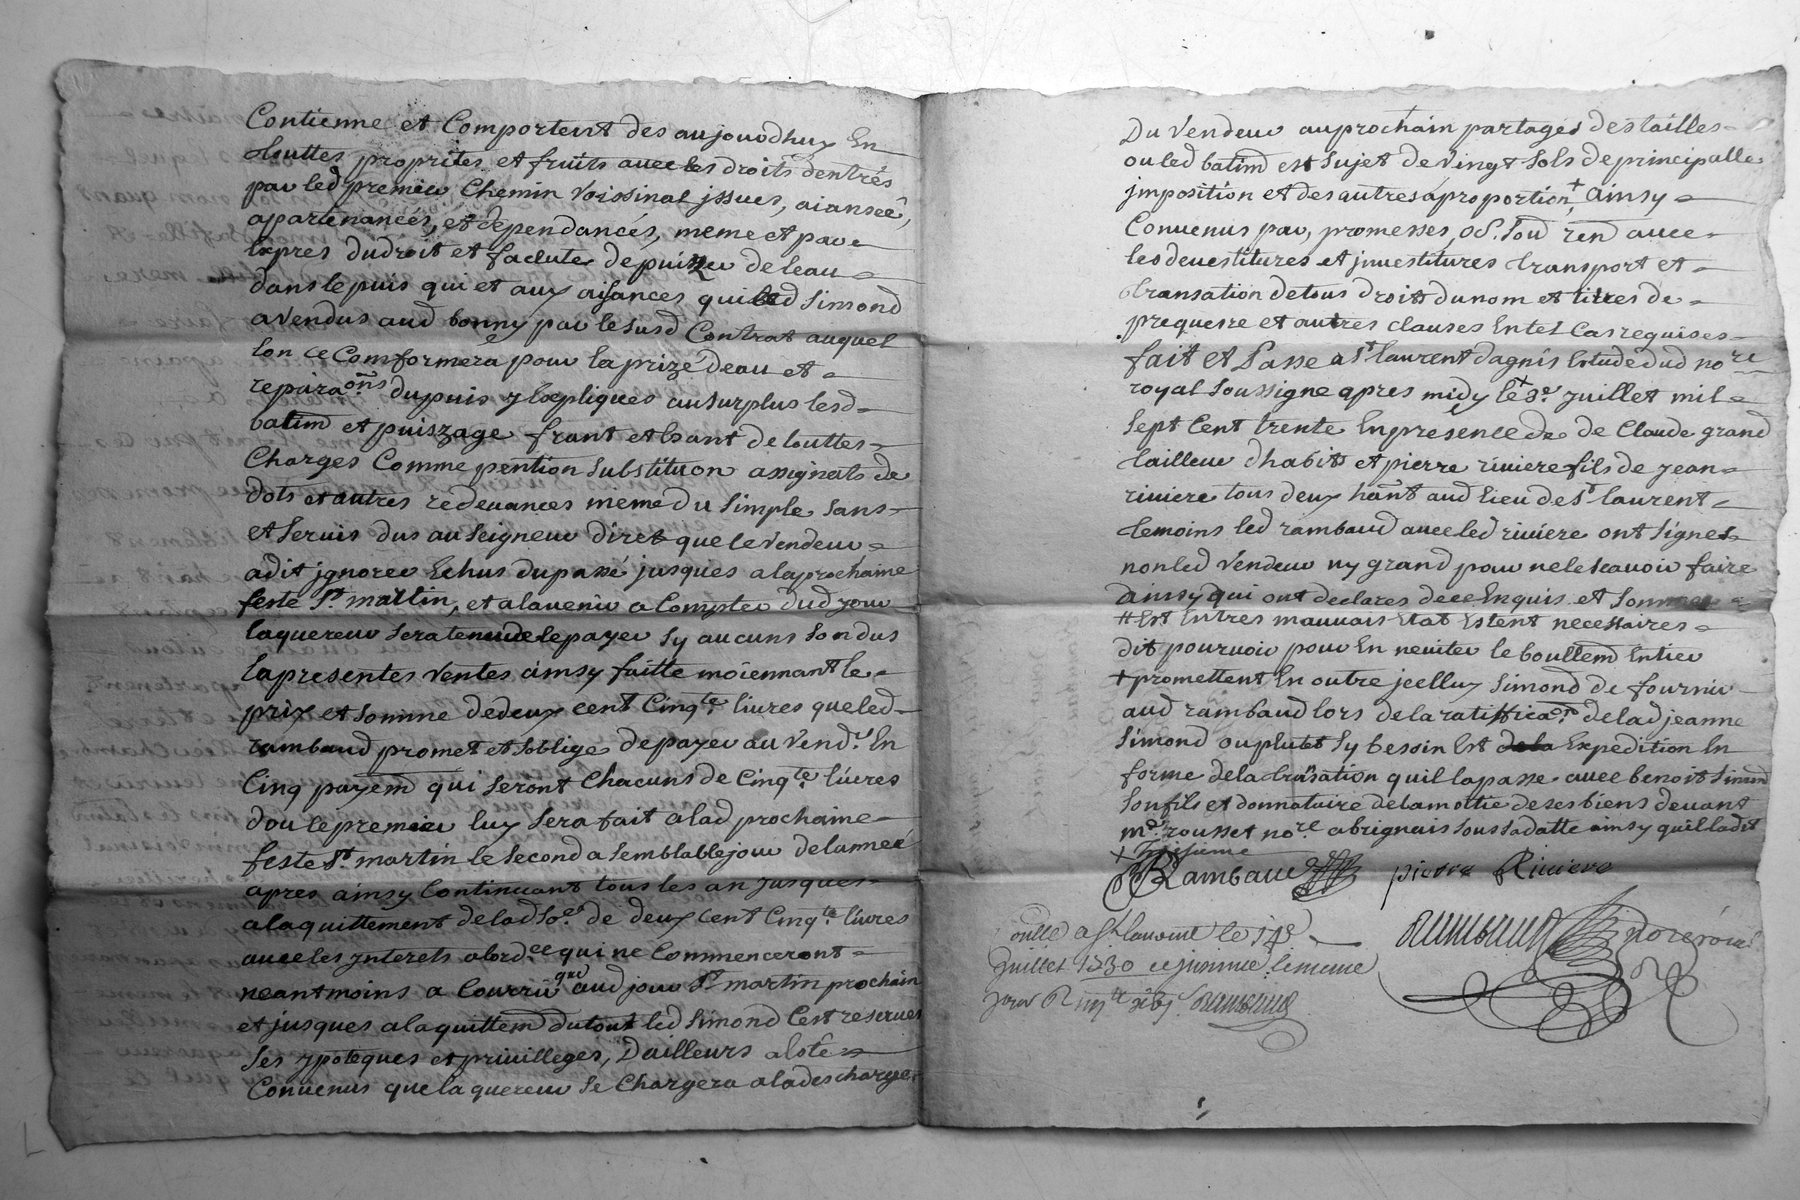 Contienne et Comportent des aujourdhuy En
touttes proprites et fruits avec les droits dentrés
par led premier Chemin Voissinal jssues, aiansee,
apartenancés, et dependancés, meme et par
lexpres dudroit et faculte depuizer de leau
dans le puis qui et aux aisances quiled Simond
a vendus aud bonny par le susd Contrat auquel
lon ce Comformera pour la prizé deau et
reparaons dupuis y Expliqués au surplus lesd
batimd et puiszage frant et Exant de touttes
Charges Comme pention Substituon assignats de
dots et autres redevances meme du Simple Sans
et Servis dus au Seigneur diret que le Vendeur
adit jgnorer Echus dupassé jusques a laprochaine
feste St. martin, et alavenir a Compter dud jour
laquereur sera tenu de le payer sy aucuns son dus
lapresentes Ventes ainsy faitte moiennant le
prix et Somme de deux cent Cinqte. livres que led
rambaud promet et soblige de payer au Vendr. En
Cinq payemd qui Seront Chacuns de Cinqte. livres
dou le premier luy sera fait alad prochaine
feste St. martin le Second a Semblable jour de lanneé
apres ainsy Continuant tous les an jusques
alaquittement de lad soe. de deux cent Cinqte livres
avec les jnterets alordce qui ne Commenceront
neantmoins a Courrir que aud jour St. martin prochain
et jusques alaquittemd du tout led Simond Cest reservés
Ses ypoteques et privilleges, Dailleurs a loté
Convenus que laquereur se Chargera alades charge
Du Vendeur auprochain partages des tailles
ou led batimd est Sujet de Vingt Sols de principalle
jmposition et des autres aproportion, + ainsy
Convenus par, promesses, ob. Soud rend avec
les devestitures et jnvestitures transport et
transation de tous droits du nom et titres de
prequerre et autres clauses En tel Cas requises
fait et Passe a St laurent dagnis Estude dud nore
royal Soussigne apres midy le + 8e. juillet mil
Sept Cent trente En presence de de Claude grand
tailleur dhabits et pierre riviere fils de jean
riviere tous deux hant aud lieu de St laurent
temoins led rambaud avec led riviere ont Signes
non led Vendeur ny grand pour ne le Scavoir faire
ainsy qui ont declares de ce Enquis et Sommes
# Est Entres mauvais Etat Estent necessaires
dit pourvoir pour En neviter le boullemd Entier
+ promettent En outre jcelluy Simond de fournir
aud rambaud lors de la ratiffican. delad jeanne
Simond ou plutot Sy bessoin Est dela Expedition En
forme dela transation quil lapasse avec benoit Simond
Son fils et donnataire dela mottie de ses biens devant
me. rousset nore. abrignais sous Sadatte ainsy quil ladit
+ Treisieme
Rambaud pierre Riviere
rambaud nore roial
oulle a St laurent le 14e.
Juillet 1730 le meme
jour rambaud